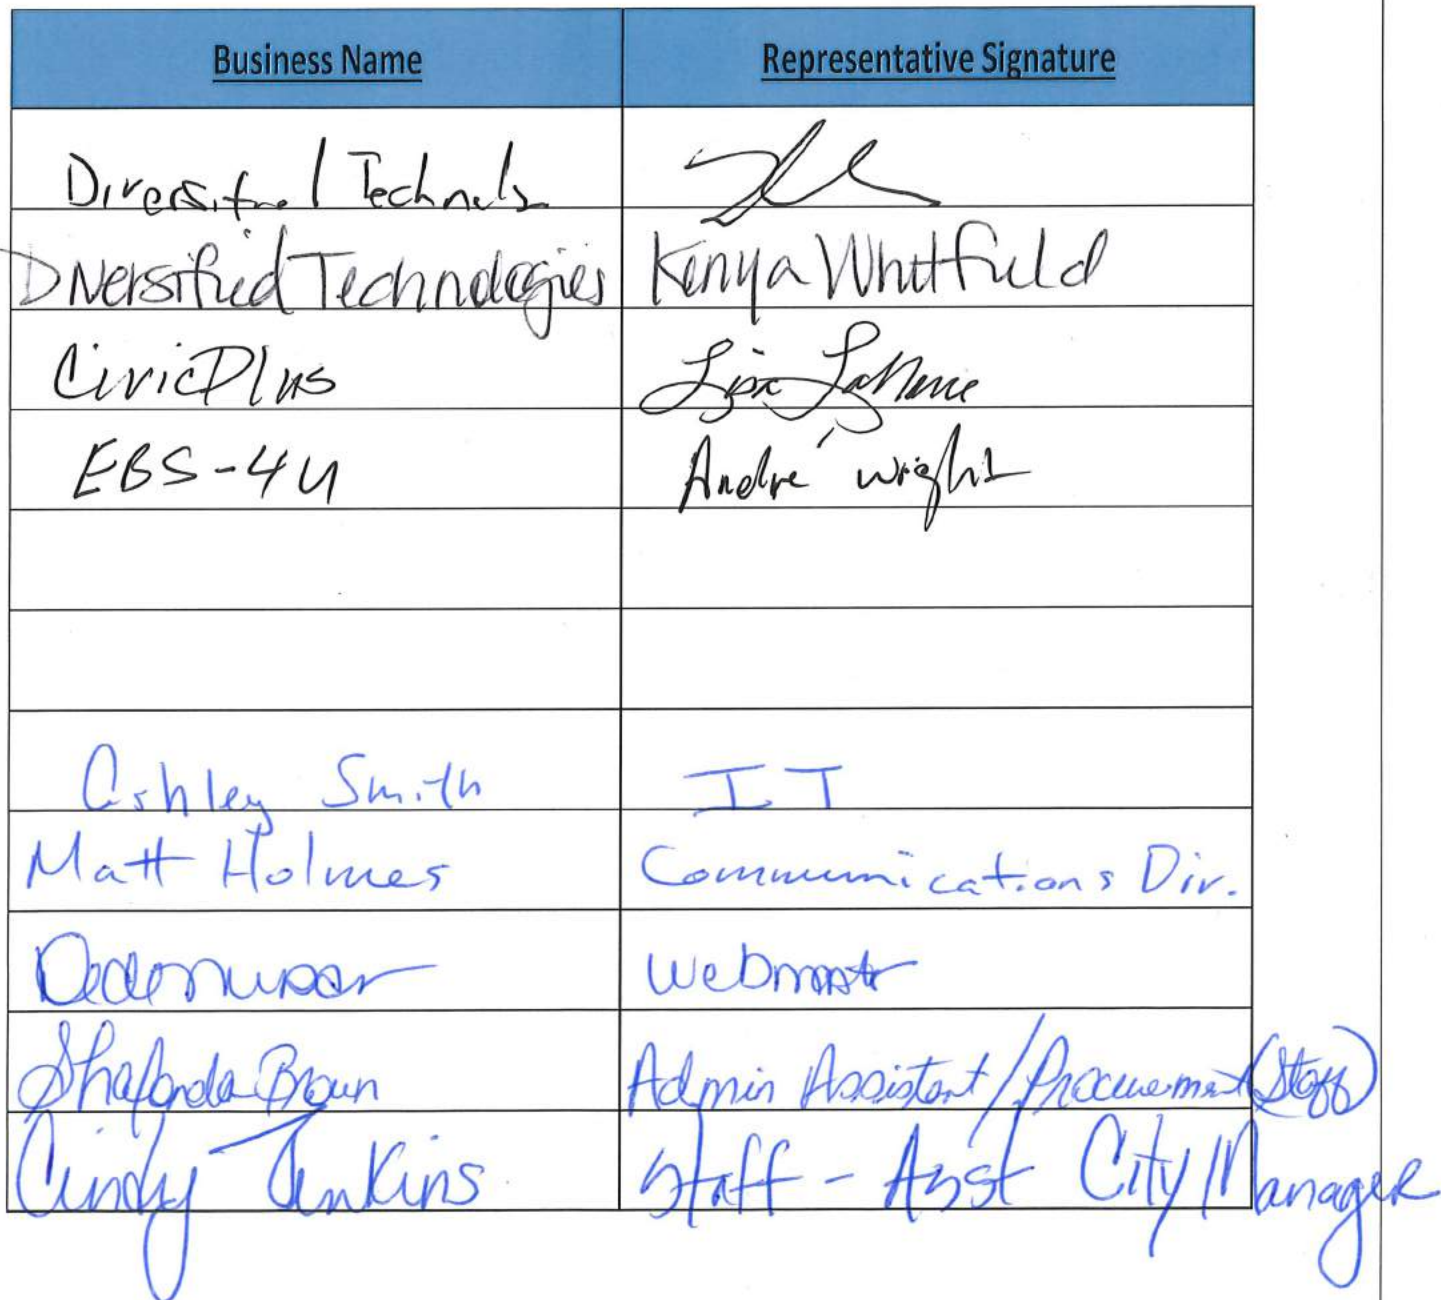 Business Name Representative Signature
Diversified
Diversified Technologies Kenya Whitfield
CivicPlus Lisa
EBS-4U André Wright
Ashley Smith IT
Matt Holmes Communications Div.
Webmastr
Brown Admin Assistant/Procurement (Staff)
Cindy Jenkins Staff - Asst City Manager